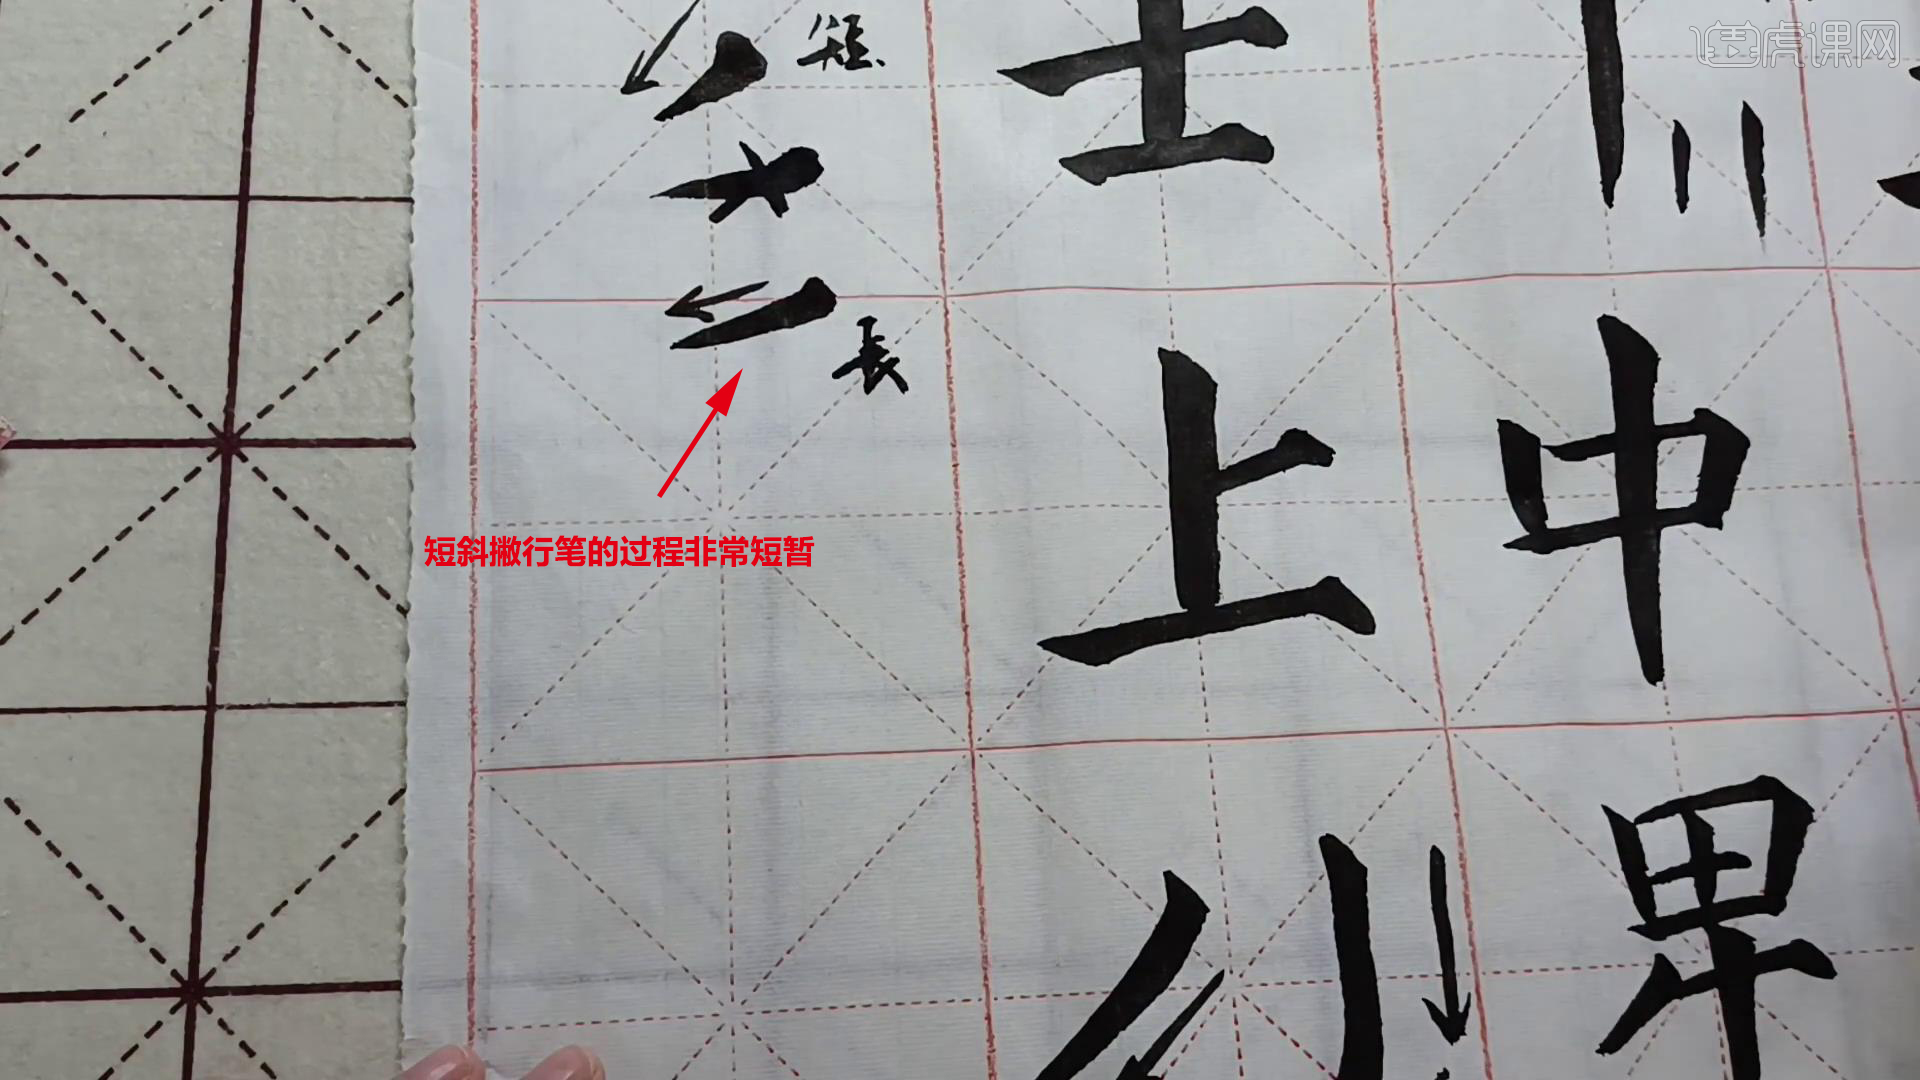 虎课网
短
士
長
上
中
短斜撇行笔的过程非常短暂